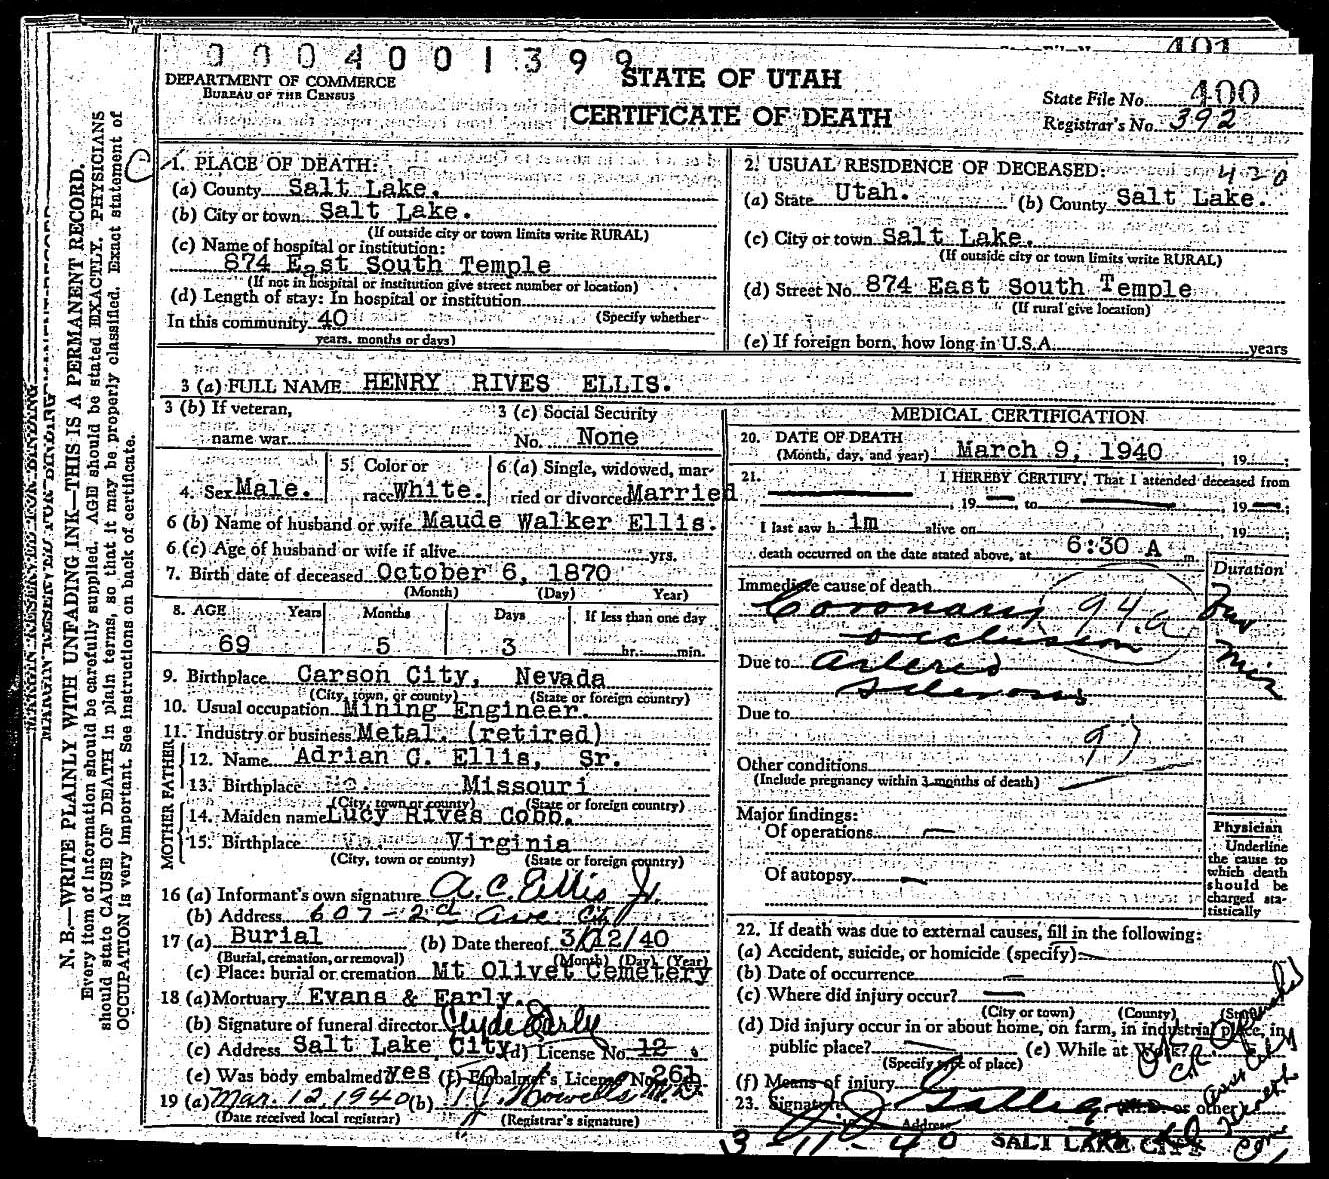 0004001399
401
DEPARTMENT OF COMMERCE
BUREAU OF THE CENSUS
STATE OF UTAH
CERTIFICATE OF DEATH
State File No. 400
Registrar's No. 392
N. B.—WRITE PLAINLY WITH UNFADING INK—THIS IS A PERMANENT RECORD.
Every item of information should be carefully supplied. AGE should be stated EXACTLY. PHYSICIANS
should state CAUSE OF DEATH in plain terms, so that it may be properly classified. Exact statement of
OCCUPATION is very important. See instructions on back of certificate.
C
1. PLACE OF DEATH:
(a) County Salt Lake.
(b) City or town Salt Lake.
(If outside city or town limits write RURAL)
(c) Name of hospital or institution:
874 East South Temple
(If not in hospital or institution give street number or location)
(d) Length of stay: In hospital or institution
In this community 40 (Specify whether
years, months or days)
2. USUAL RESIDENCE OF DECEASED: 420
(a) State Utah. (b) County Salt Lake.
(c) City or town Salt Lake.
(If outside city or town limits write RURAL)
(d) Street No. 874 East South Temple
(If rural give location)
(e) If foreign born, how long in U.S.A. years
3 (a) FULL NAME HENRY RIVES ELLIS.
3 (b) If veteran, name war
3 (c) Social Security No. None
4. Sex Male.
5. Color or race White.
6 (a) Single, widowed, married or divorced Married
6 (b) Name of husband or wife Maude Walker Ellis.
6 (c) Age of husband or wife if alive yrs.
7. Birth date of deceased October 6, 1870
(Month) (Day) Year)
8. AGE Years Months Days If less than one day
69 5 3 hr. min.
9. Birthplace Carson City, Nevada
(City, town, or county) (State or foreign country)
10. Usual occupation Mining Engineer.
11. Industry or business Metal. (retired)
FATHER
12. Name Adrian C. Ellis, Sr.
13. Birthplace Missouri
(City, town or county) (State or foreign country)
MOTHER
14. Maiden name Lucy Rives Cobb.
15. Birthplace Virginia
(City, town or county) (State or foreign country)
16 (a) Informant's own signature A. C. Ellis Jr.
(b) Address 607 - 2d Ave City
17 (a) Burial (b) Date thereof 3/12/40
(Burial, cremation, or removal) (Month) (Day) (Year)
(c) Place: burial or cremation Mt Olivet Cemetery
18 (a) Mortuary Evans & Early.
(b) Signature of funeral director Clyde Early
(c) Address Salt Lake City (d) License No. 12
(e) Was body embalmed? yes (f) Embalmer's License No. 261
19 (a) Mar. 12, 1940 (b) T. J. Howells M.D.
(Date received local registrar) (Registrar's signature)
MEDICAL CERTIFICATION
20. DATE OF DEATH
(Month, day, and year) March 9, 1940, 19 ;
21. I HEREBY CERTIFY, That I attended deceased from
, 19 , to , 19 ;
I last saw h im alive on , 19 ;
death occurred on the date stated above, at 6:30 A m.
Duration
Immediate cause of death
Coronary 94.a
occlusion
Few Min
Due to Arterio
Sclerosis
Due to
97
Other conditions
(Include pregnancy within 3 months of death)
Major findings:
Of operations
Of autopsy
Physician
Underline the cause to which death should be charged statistically
22. If death was due to external causes, fill in the following:
(a) Accident, suicide, or homicide (specify)
(b) Date of occurrence
(c) Where did injury occur?
(City or town) (County) (State)
(d) Did injury occur in or about home, on farm, in industrial place, in
public place? (e) While at Work?
(Specify type of place)
(f) Means of injury
23. Signature M.D. or other
Address
3-11-40 SALT LAKE CITY